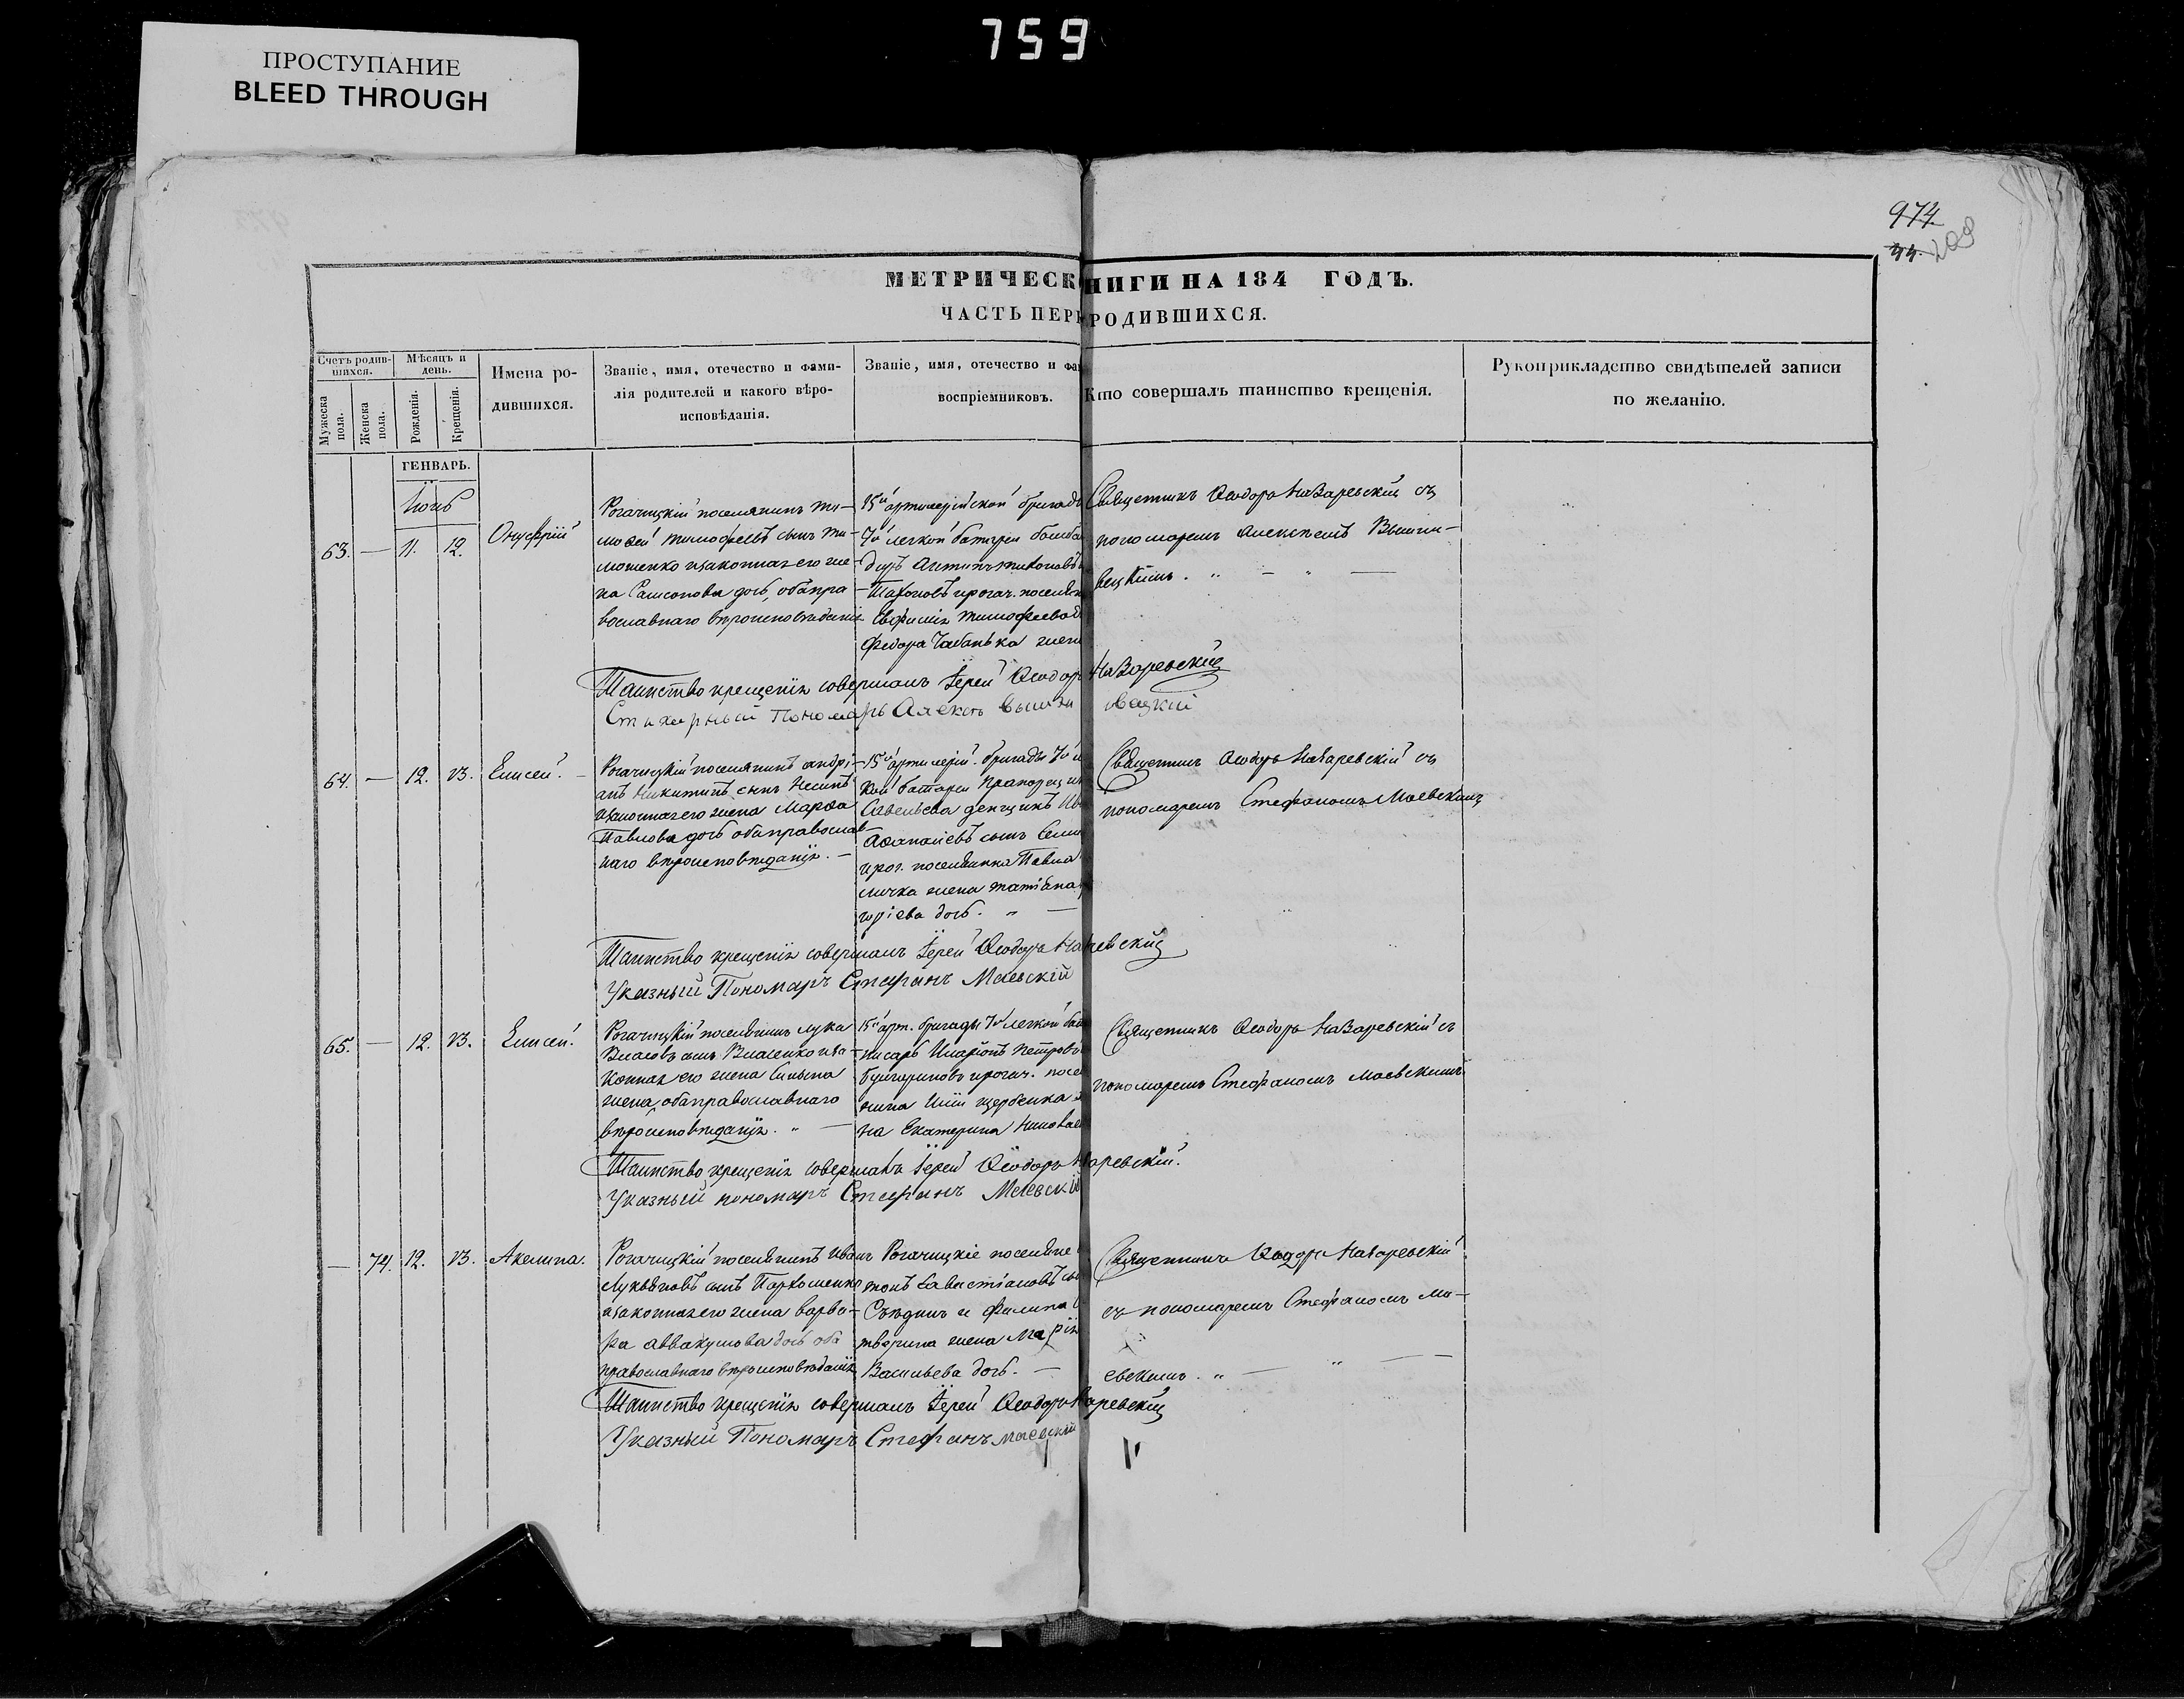 759
ПРОСТУПАНИЕ
BLEED THROUGH
974.
44. 209
МЕТРИЧЕСК НИГИ НА 184 ГОДЪ.
ЧАСТЬ ПЕРВ РОДИВШИХСЯ.
Счетъ родив-
шихся.
Мужеска
пола.
Женска
пола.
Мѣсяцъ и
день.
Рожденія.
Крещенія.
Имена ро-
дившихся.
Званіе, имя, отечество и фами-
лія родителей и какого вѣро-
исповѣданія.
Званіе, имя, отечество и фа
воспріемниковъ.
Кто совершалъ таинство крещенія.
Рукоприкладство свидѣтелей записи
по желанію.
ГЕНВАРЬ.
Іюнь
63. — 11. 12. Онуфрій
Рогачицкій поселянинъ Ти-
мофей Тимофеевъ сынъ Ти-
мошенко изаконная его же-
на Самсонова дочь, оба пра-
вославнаго вѣроисповѣданія.
15й артилерійской бригады
7й легкой батареи бомба
диръ Антипъ
и рогач. поселян
Евфимія Тимофеева д
Федора Чабанька жена
Священникъ Ѳеодоръ Назаревскій съ
пономаремъ Алексѣемъ Вышни-
вецкимъ. „ — „ —
Таинство крещенія совершалъ Іерей Ѳеодоръ Назаревскій
Стихарный Пономарь Алексѣ Вышни вецкій
64. — 12. 13. Елисей. —
Рогачицкій поселянинъ андрі-
анъ Никитинъ сынъ
изаконная его жена Марѳа
Павлова дочь оба православ-
наго вѣроисповѣданія. —
15й артилерій. бригады 7й л
кой батареи Прапорщик
Савельева денщикъ Ив
Аѳанасіевъ сынъ
и рог. поселянина Павла
личка жена Татіана
горіева дочь. „ —
Священникъ Ѳеодоръ Назаревскій съ
пономаремъ Стефаномъ Маевскимъ
Таинство крещенія совершалъ Іерей Ѳеодоръ На ревскій
Указный Пономарь Стефанъ Маевскій
65. — 12. 13. Елисей.
Рогачицкій поселянинъ лука
Власовъ сынъ Власенко иза-
конная его жена
жена, оба православнаго
вѣроисповѣданія. „ —
15й арт. бригады 7й легкой бат
писарь Иларіонъ Петровъ
и рогач. посел
нина Иліи щербенка
на Екатерина
Священникъ Ѳеодоръ Назаревскій съ
пономаремъ Стефаномъ Маевскимъ
Таинство крещенія совершалъ Іерей Ѳеодоръ На аревскій.
Указный пономарь Стефанъ Маевскій
— 74. 12. 13. Акелина.
Рогачицкій поселянинъ Иванъ
Лукьяновъ сынъ Пархоменко
изаконная его жена варва-
ра аввакумова дочь оба
православнаго вѣроисповѣданія
Рогачицкіе поселяне
тонъ Савастіановъ сы
и Филипа
жена Марія
Васильева дочь. —
Священникъ Ѳеодоръ Назаревскій
съ пономаремъ Стефаномъ Ма-
евскимъ. „ — „ —
Таинство крещенія совершалъ Іерей Ѳеодоръ На аревскій
Указный Пономарь Стефанъ Маевскій